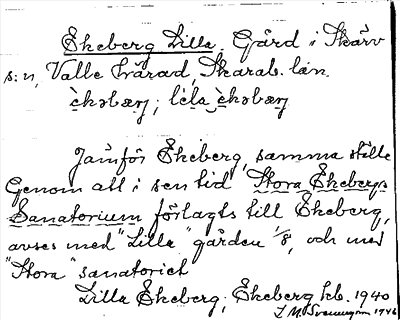 Ekeberg Lilla. Gård i Skärv
s:n, Valle härad, Skarab. län.
Jämför Ekeberg, samma ställe
Genom att i sen tid Stora Ekebergs
Sanatorium förlagts till Ekeberg,
avses med "Lilla" gården 1/8, och med
"Stora" sanatoriet
Lilla Ekeberg, Ekeberg hb. 1940